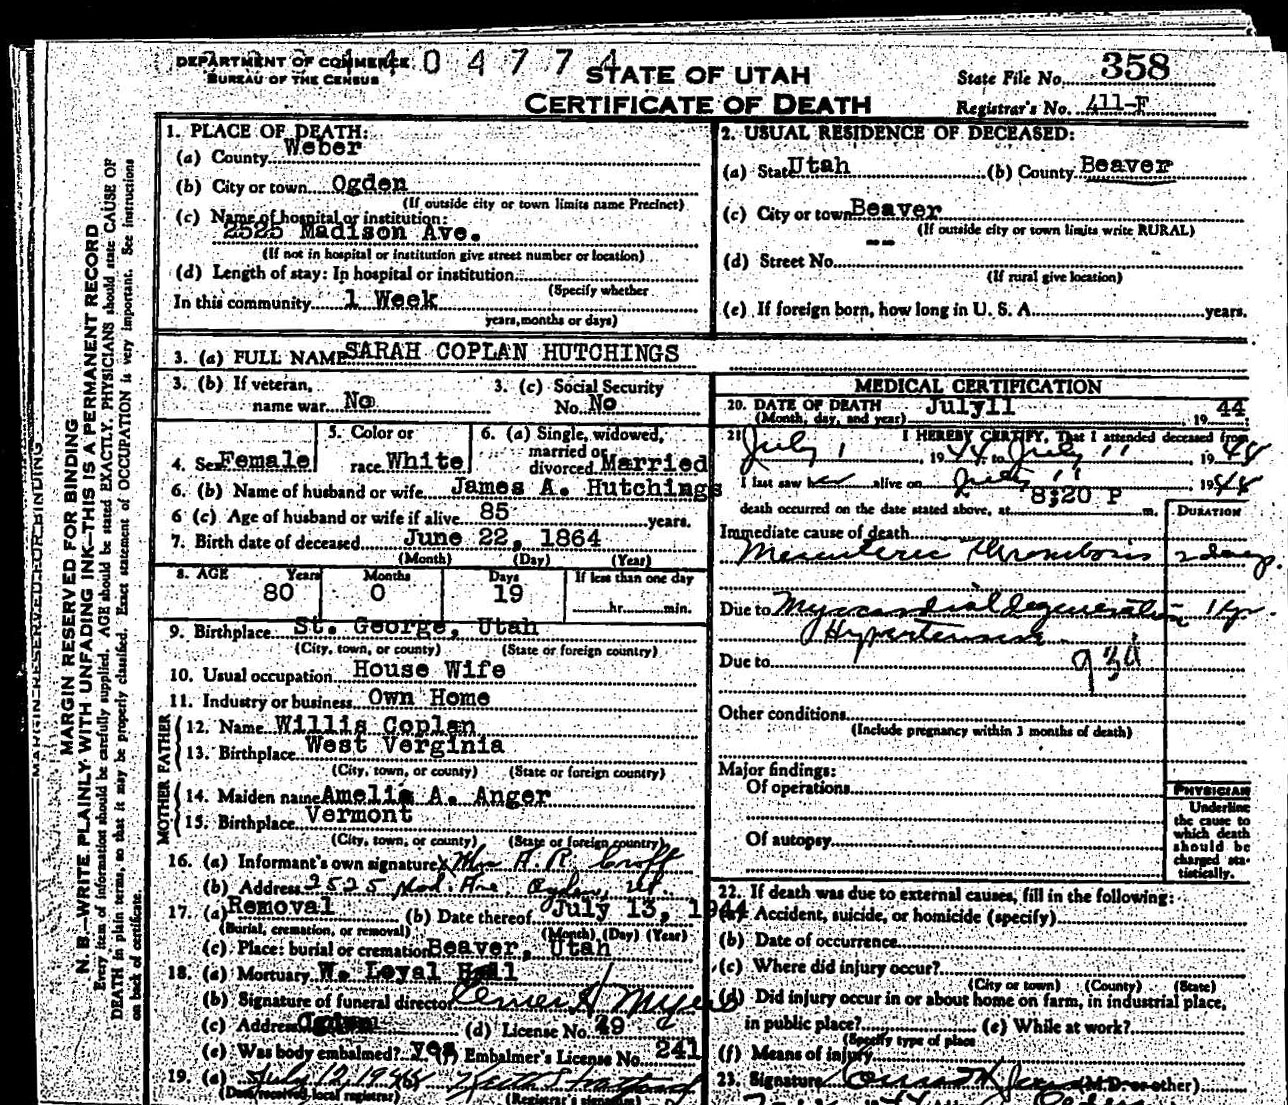 DEPARTMENT OF COMMERCE 0 4 7 7 4
BUREAU OF THE CENSUS
STATE OF UTAH
CERTIFICATE OF DEATH
State File No. 358
Registrar's No. 411-F
MARGIN RESERVED FOR BINDING
MARGIN RESERVED FOR BINDING
N. B.—WRITE PLAINLY WITH UNFADING INK—THIS IS A PERMANENT RECORD
Every item of information should be carefully supplied. AGE should be stated EXACTLY. PHYSICIANS should state CAUSE OF
DEATH in plain terms, so that it may be properly classified. Exact statement of OCCUPATION is very important. See instructions
on back of certificate.
1. PLACE OF DEATH:
(a) County Weber
(b) City or town Ogden
(If outside city or town limits name Precinct)
(c) Name of hospital or institution:
2525 Madison Ave.
(If not in hospital or institution give street number or location)
(d) Length of stay: In hospital or institution
(Specify whether
In this community 1 Week
years, months or days)
2. USUAL RESIDENCE OF DECEASED:
(a) State Utah (b) County Beaver
(c) City or town Beaver
(If outside city or town limits write RURAL)
(d) Street No. --
(If rural give location)
(e) If foreign born, how long in U. S. A. years.
3. (a) FULL NAME SARAH COPLAN HUTCHINGS
3. (b) If veteran, name war No
3. (c) Social Security No. No
4. Sex Female
5. Color or race White
6. (a) Single, widowed, married or divorced Married
6. (b) Name of husband or wife James A. Hutchings
6 (c) Age of husband or wife if alive 85 years.
7. Birth date of deceased June 22, 1864
(Month) (Day) (Year)
8. AGE Years Months Days If less than one day
80 0 19 hr. min.
9. Birthplace St. George, Utah
(City, town, or county) (State or foreign country)
10. Usual occupation House Wife
11. Industry or business Own Home
FATHER
12. Name Willis Coplan
13. Birthplace West Verginia
(City, town, or county) (State or foreign country)
MOTHER
14. Maiden name Amelia A. Anger
15. Birthplace Vermont
(City, town, or county) (State or foreign country)
16. (a) Informant's own signature x Mrs A. R. Croft
(b) Address 2525 Mad. Ave, Ogden, Ut.
17. (a) Removal (b) Date thereof July 13, 1944
(Burial, cremation, or removal) (Month) (Day) (Year)
(c) Place: burial or cremation Beaver, Utah
18. (a) Mortuary W. Leyal Hall
(b) Signature of funeral director
(c) Address Ogden (d) License No. 49
(e) Was body embalmed? yes (f) Embalmer's License No. 241
19. (a) July 12, 1944
(Date received local registrar) (Registrar's signature)
MEDICAL CERTIFICATION
20. DATE OF DEATH July 11 , 19 44
(Month, day, and year)
21. I HEREBY CERTIFY, That I attended deceased from
July 1, 1944, to July 11, 1944
I last saw her alive on July 11, 1944
death occurred on the date stated above, at 8:20 P m.
DURATION
Immediate cause of death
Mesenteric Thrombosis 2 days.
Due to Myocardial degeneration 1 yr.
Hypertension
Due to 93d
Other conditions
(Include pregnancy within 3 months of death)
Major findings:
Of operations
Of autopsy
PHYSICIAN
Underline
the cause to
which death
should be
charged sta-
tistically.
22. If death was due to external causes, fill in the following:
(a) Accident, suicide, or homicide (specify)
(b) Date of occurrence
(c) Where did injury occur?
(City or town) (County) (State)
(d) Did injury occur in or about home on farm, in industrial place,
in public place? (e) While at work?
(Specify type of place
(f) Means of injury
23. Signature (M.D. or other)